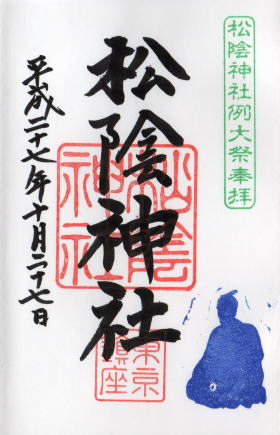 松陰神社例大祭奉拝
松陰神社
平成二十七年十月二十七日
松陰
神社
東京
鎮座